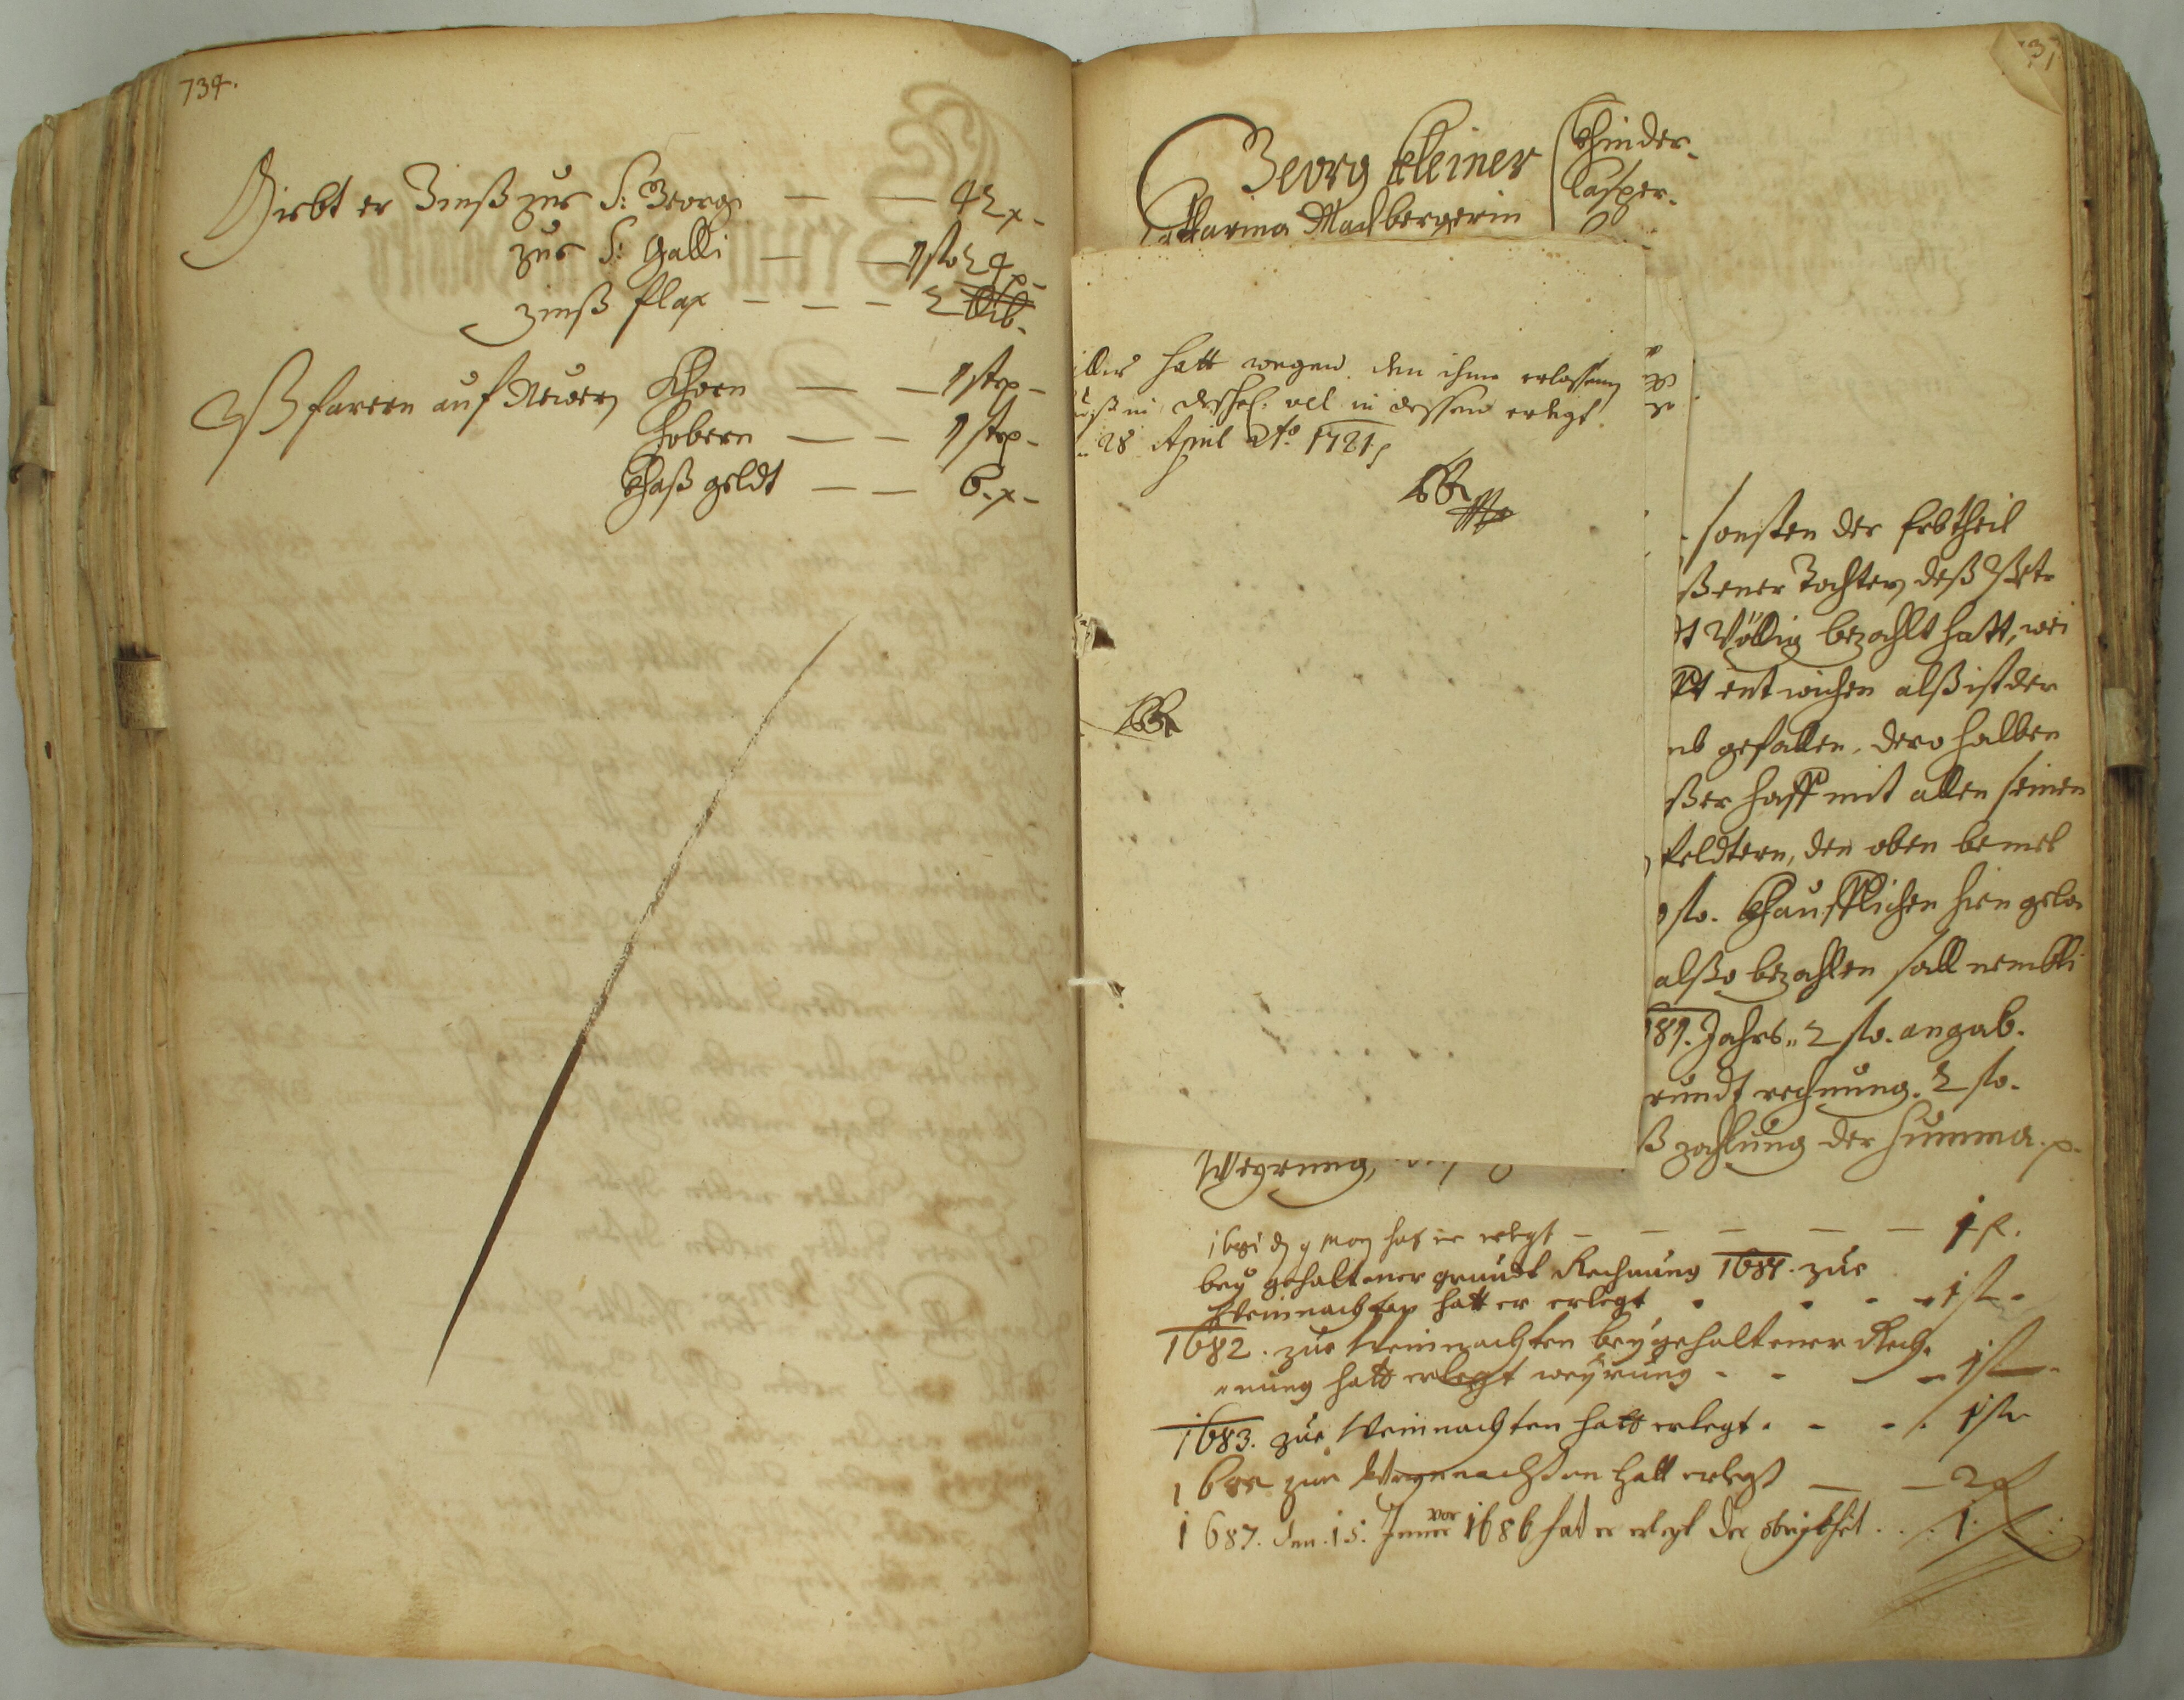 734.
Giebt er Zinß zue S: Georgi — — 42 x-
zue S: Galli — — 1 sto 24 x-
zinß flax — — — 2
Pfarern auf Newern Khorn — — 1 str-
Habern — — 1 str-
Khaß geldt — — 6. x-
Georg Kleiner
Catharina Machbergerin
Khinder-
Casper-
hatt wegen den ihme erlassenen
in dessen erlegt
28 April Ao 1721
sonsten der Erbtheil
ßener Tochter, deß
Völlig bezahlt hatt, wei
entwichen alß ist der
gefallen, dero halben
ßer Hoff mit allen seinen
feldtern, den oben bemel
sto. Khaufflichen hien gela
alßo bezahlen soll nembli
81. Jahrs 2 sto. angab.
rundt rechnung. 2 sto.
ß zahlung der Summa
Weyrung,
1681 d 9 May hat er erlegt — — — — — 1 f.
bey gehaltener grundt Rechnung 1681. zue
Weinnachten hatt er erlegt - - - - 1 st-
1682. zue Weinnachten bey gehaltener Rech-
nung hatt erlegt weyrung - - - - 1 st-
1683. zue Weinnachten hatt erlegt. - - - 1 st-
zue Weynnachten hatt erlegt — — 2 f
1687. den. 15. Jener vor 1686 hat er erlegt der obrigkheit . . . 1.